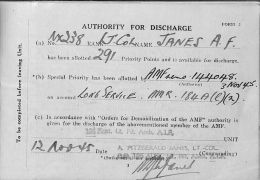 FORM 2
AUTHORITY FOR DISCHARGE
(a) No. NX238 RANK Lt Col NAME JANES A.F.
has been allotted 291 Priority Points and is available for discharge.
(b) Special Priority has been allotted
(Authority) 3 Nov 45
on account LONG SERVICE
(c) In accordance with "Orders for Demobilization of the AMF" authority is
given for the discharge of the abovementioned member of the AMF
UNIT
12 Nov 45 Date
LT. COL.
(Commanding)
To be completed before leaving Unit.